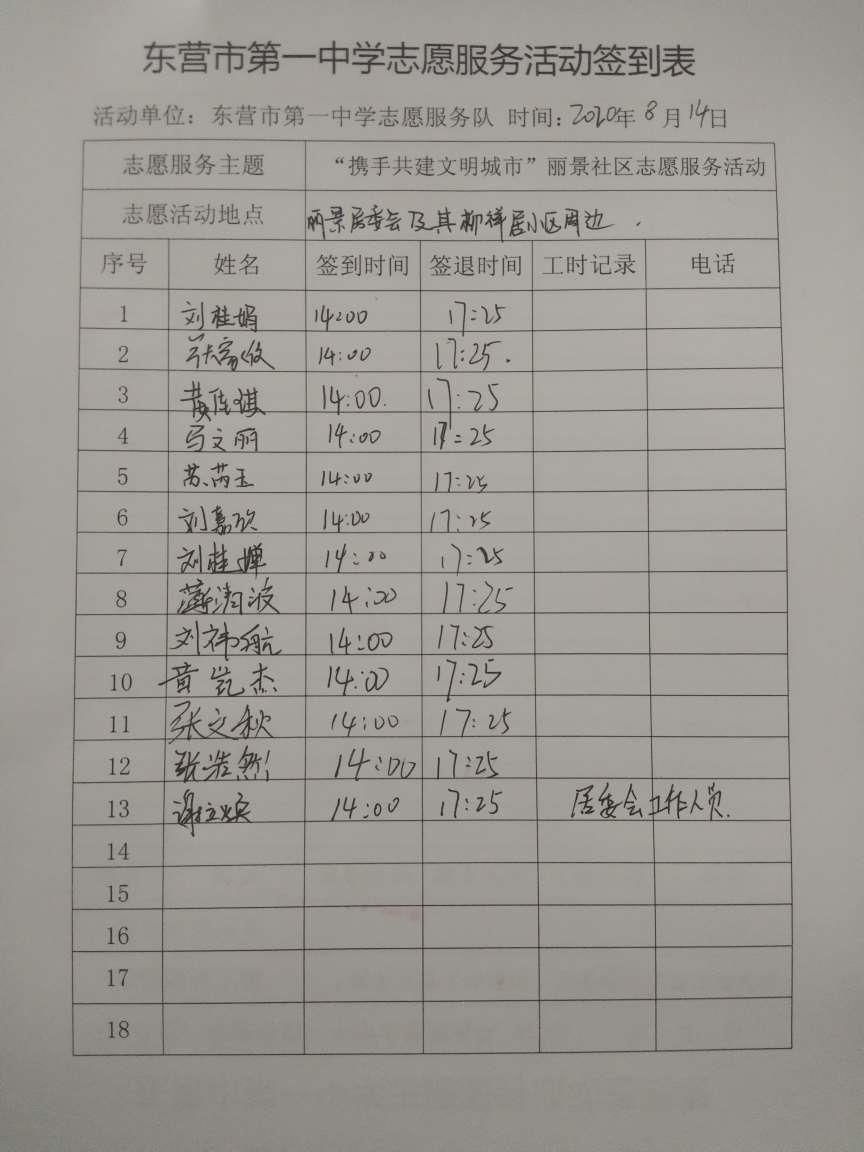 东营市第一中学志愿服务活动签到表
活动单位：东营市第一中学志愿服务队 时间：2020年8月14日
志愿服务主题 “携手共建文明城市”丽景社区志愿服务活动
志愿活动地点 丽景居委会及其柳祥居小区周边.
序号 姓名 签到时间 签退时间 工时记录 电话
1 刘桂娟 14:00 17:25
2 张 14:00 17:25.
3 黄 琪 14:00. 17:25
4 马文丽 14:00 17:25
5 苏芮玉 14:00 17:25
6 刘嘉欣 14:00 17:25
7 刘桂婵 14:00 17:25
8 薄 波 14:00 17:25
9 刘祎航 14:00 17:25
10 黄凯杰 14:00 17:25
11 张文秋 14:00 17:25
12 张浩然 14:00 17:25
13 谢立 14:00 17:25 居委会工作人员.
14
15
16
17
18